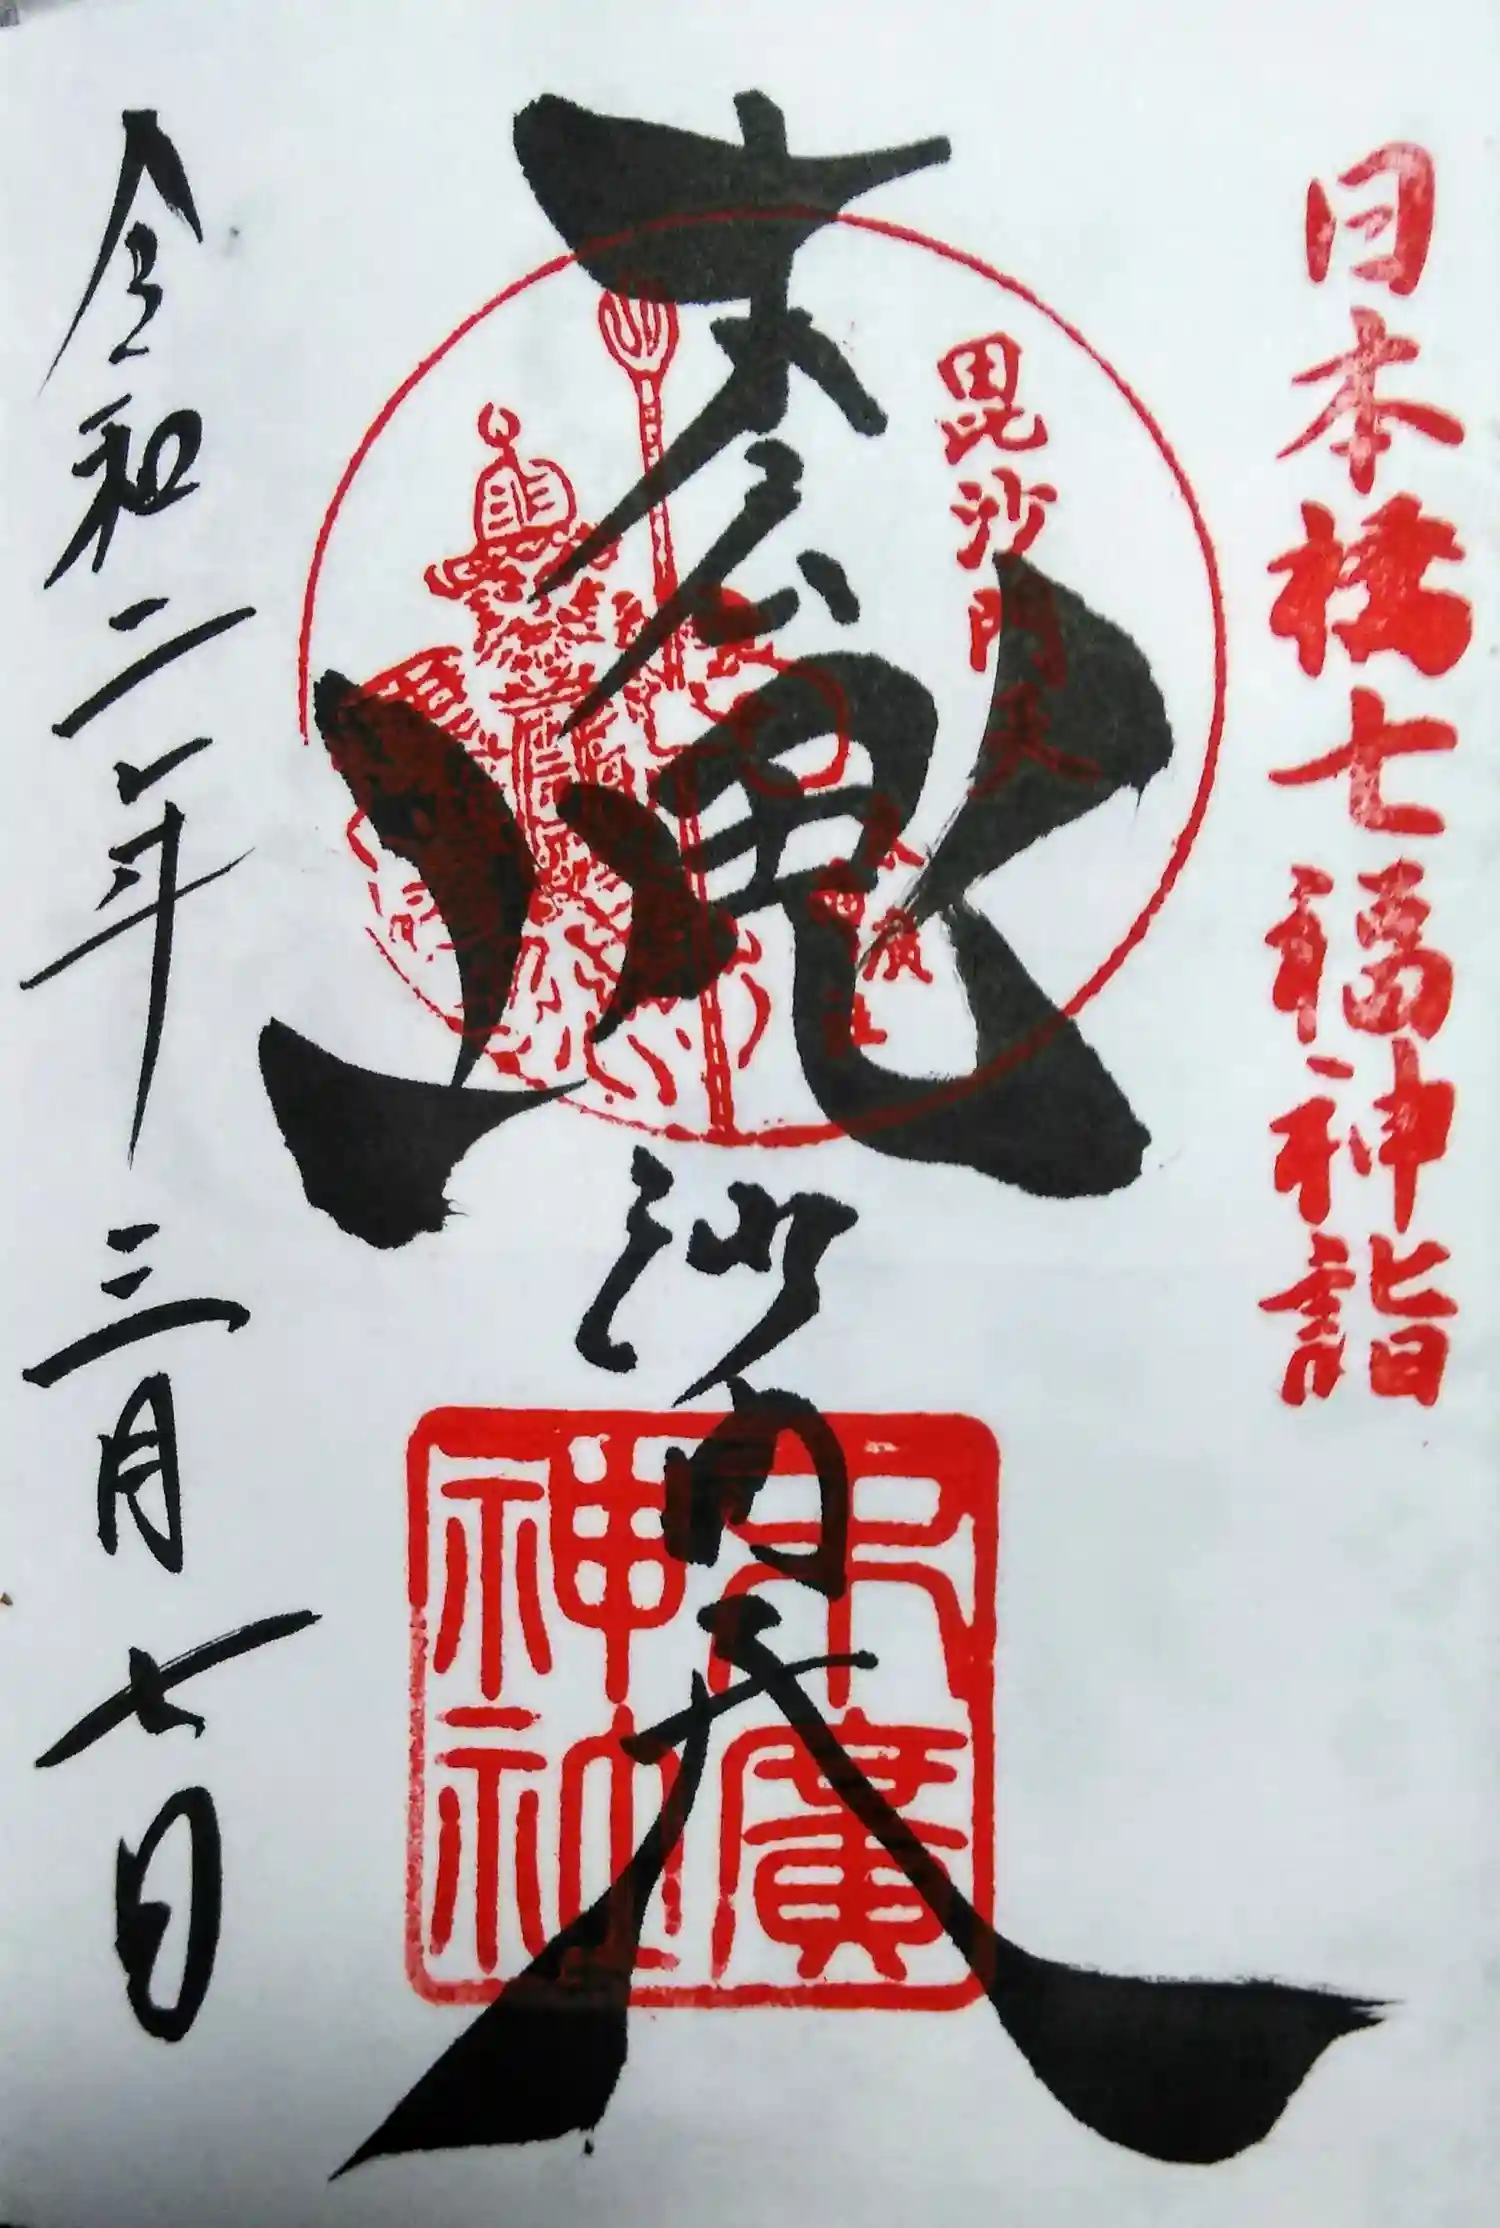 日本橋七福神詣
毘沙門天
末広毘沙門天
末廣
神社
令和二年三月七日